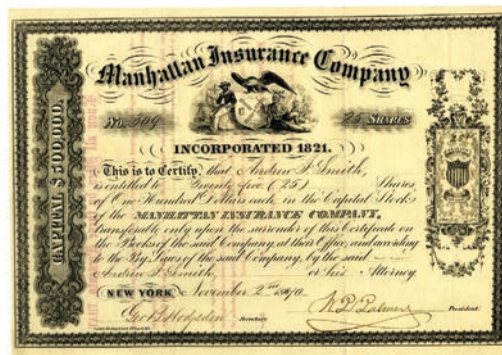 Manhattan Insurance Company
No. 509
25 SHARES
INCORPORATED 1821.
CAPITAL $500,000.
This is to Certify, that Andrew J. Smith,
is entitled to Twenty five (25) Shares
of One Hundred Dollars each, in the Capital Stock
of the MANHATTAN INSURANCE COMPANY,
transferable only upon the surrender of this Certificate on
the Books of the said Company, at their Office, and according
to the By Laws of the said Company, by the said
Andrew J. Smith, or his Attorney.
NEW YORK November 2nd 1870
Geo. B. Hodgsden Secretary
President.